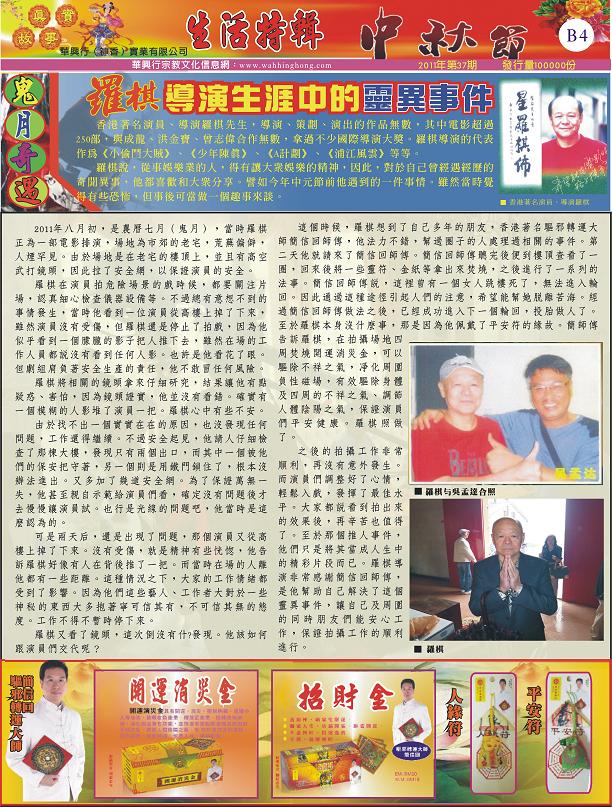 真實
故事
華興行（神香）實業有限公司
生活特輯
中秋節
B4
華興行宗教文化信息網：www.wahhinghong.com
2011年第37期
發行量100000份
鬼月奇遇
羅棋導演生涯中的靈異事件
香港著名演員、導演羅棋先生，導演、策劃、演出的作品無數，其中電影超過
250部，與成龍、洪金寶、曾志偉合作無數，拿過不少國際導演大獎。羅棋導演的代表
作為《小偷鬥大賊》、《少年陳真》、《A計劃》、《浦江風雲》等等。
羅棋說，從事娛樂業的人，得有讓大眾娛樂的精神，因此，對於自己曾經遇經歷的
奇聞異事，他都喜歡和大眾分享。譬如今年中元節前他遇到的一件事情。雖然當時覺
得有些恐怖，但事後可當做一個趣事來談。
星羅棋佈
■ 香港著名演員、導演羅棋
2011年八月初，是農曆七月（鬼月），當時羅棋
正為一部電影排演，場地為市郊的老宅，荒蕪偏僻，
人煙罕見。由於場地是在老宅的樓頂上，並且有高空
武打鏡頭，因此拉了安全網，以保證演員的安全。
羅棋在演員拍危險場景的戲時候，都要關注片
場，認真細心檢查儀器設備等。不過總有意想不到的
事情發生，當時他看到一位演員從高樓上掉了下來，
雖然演員沒有受傷，但羅棋還是停止了拍戲，因為他
似乎看到一個朦朧的影子把人推下去，雖然在場的工
作人員都說沒有看到任何人影。也許是他看花了眼。
但劇組肩負著安全生產的責任，他不敢冒任何風險。
羅棋將相關的鏡頭拿來仔細研究，結果讓他有點
疑惑、害怕，因為鏡頭證實，他並沒有看錯。確實有
一個模糊的人影堆了演員一把。羅棋心中有些不安。
由於找不出一個實實在在的原因，也沒發現任何
問題，工作還得繼續。不過安全起見，他請人仔細檢
查了那棟大樓，發現只有兩個出口，而其中一個被他
們的保安把守著，另一個則是用鐵門鎖住了，根本沒
辦法進出。又多加了幾道安全網。為了保證萬無一
失，他甚至親自示範給演員們看，確定沒有問題後才
去慢慢讓演員試。也行是光線的問題吧，他當時是這
麼認為的。
可是兩天后，還是出現了問題，那個演員又從高
樓上掉了下來。沒有受傷，就是精神有些恍惚，他告
訴羅棋好像有人在背後推了一把。而當時在場的人離
他都有一些距離。這種情況之下，大家的工作情緒都
受到了影響。因為他們這些藝人、工作者大對於一些
神秘的東西大多抱著寧可信其有，不可信其無的態
度。工作不得不暫時停下來。
羅棋又看了鏡頭，這次倒沒有什?發現。他該如何
跟演員們交代呢？
這個時候，羅棋想到了自己多年的朋友，香港著名驅邪轉運大
師簡信回師傅，他法力不錯，幫過圈子的人處理過相關的事件。第
二天他就請來了簡信回師傅。簡信回師傅聽完後便到樓頂查看了一
圈，回來後將一些靈符、金紙等拿出來焚燒，之後進行了一系列的
法事。簡信回師傅說，這裡曾有一個女人跳樓死了，無法進入輪
回。因此通過這種途徑引起人們的注意，希望能幫她脫離苦海。經
過簡信回師傅做法之後，已經成功進入下一個輪回，投胎做人了。
至於羅棋本身沒什麼事，那是因為他佩戴了平安符的緣故。簡師傅
告訴羅棋，在拍攝場地四
周焚燒開運消災金，可以
驅除不祥之氣，淨化周圍
負性磁場，有效驅除身體
及四周的不祥之氣、調節
人體陰陽之氣，保證演員
們平安健康。羅棋照做
了。
之後的拍攝工作非常
順利，再沒有意外發生。
而演員們調整好了心情，
輕鬆入戲，發揮了最佳水
平。大家都說看到拍出來
的效果後，再辛苦也值得
了。至於那個推人事件，
他們只是將其當成人生中
的精彩片段而已。羅棋導
演非常感謝簡信回師傅，
是他幫助自己解決了這個
靈異事件，讓自己及周圍
的同時朋友們能安心工
作，保證拍攝工作的順利
進行。
吳孟达
■ 羅棋与吳孟達合照
■ 羅棋
簡信回
驅邪轉運大師
開運消災金
招財金
驅邪轉運大師
簡信回
人緣符
平安符